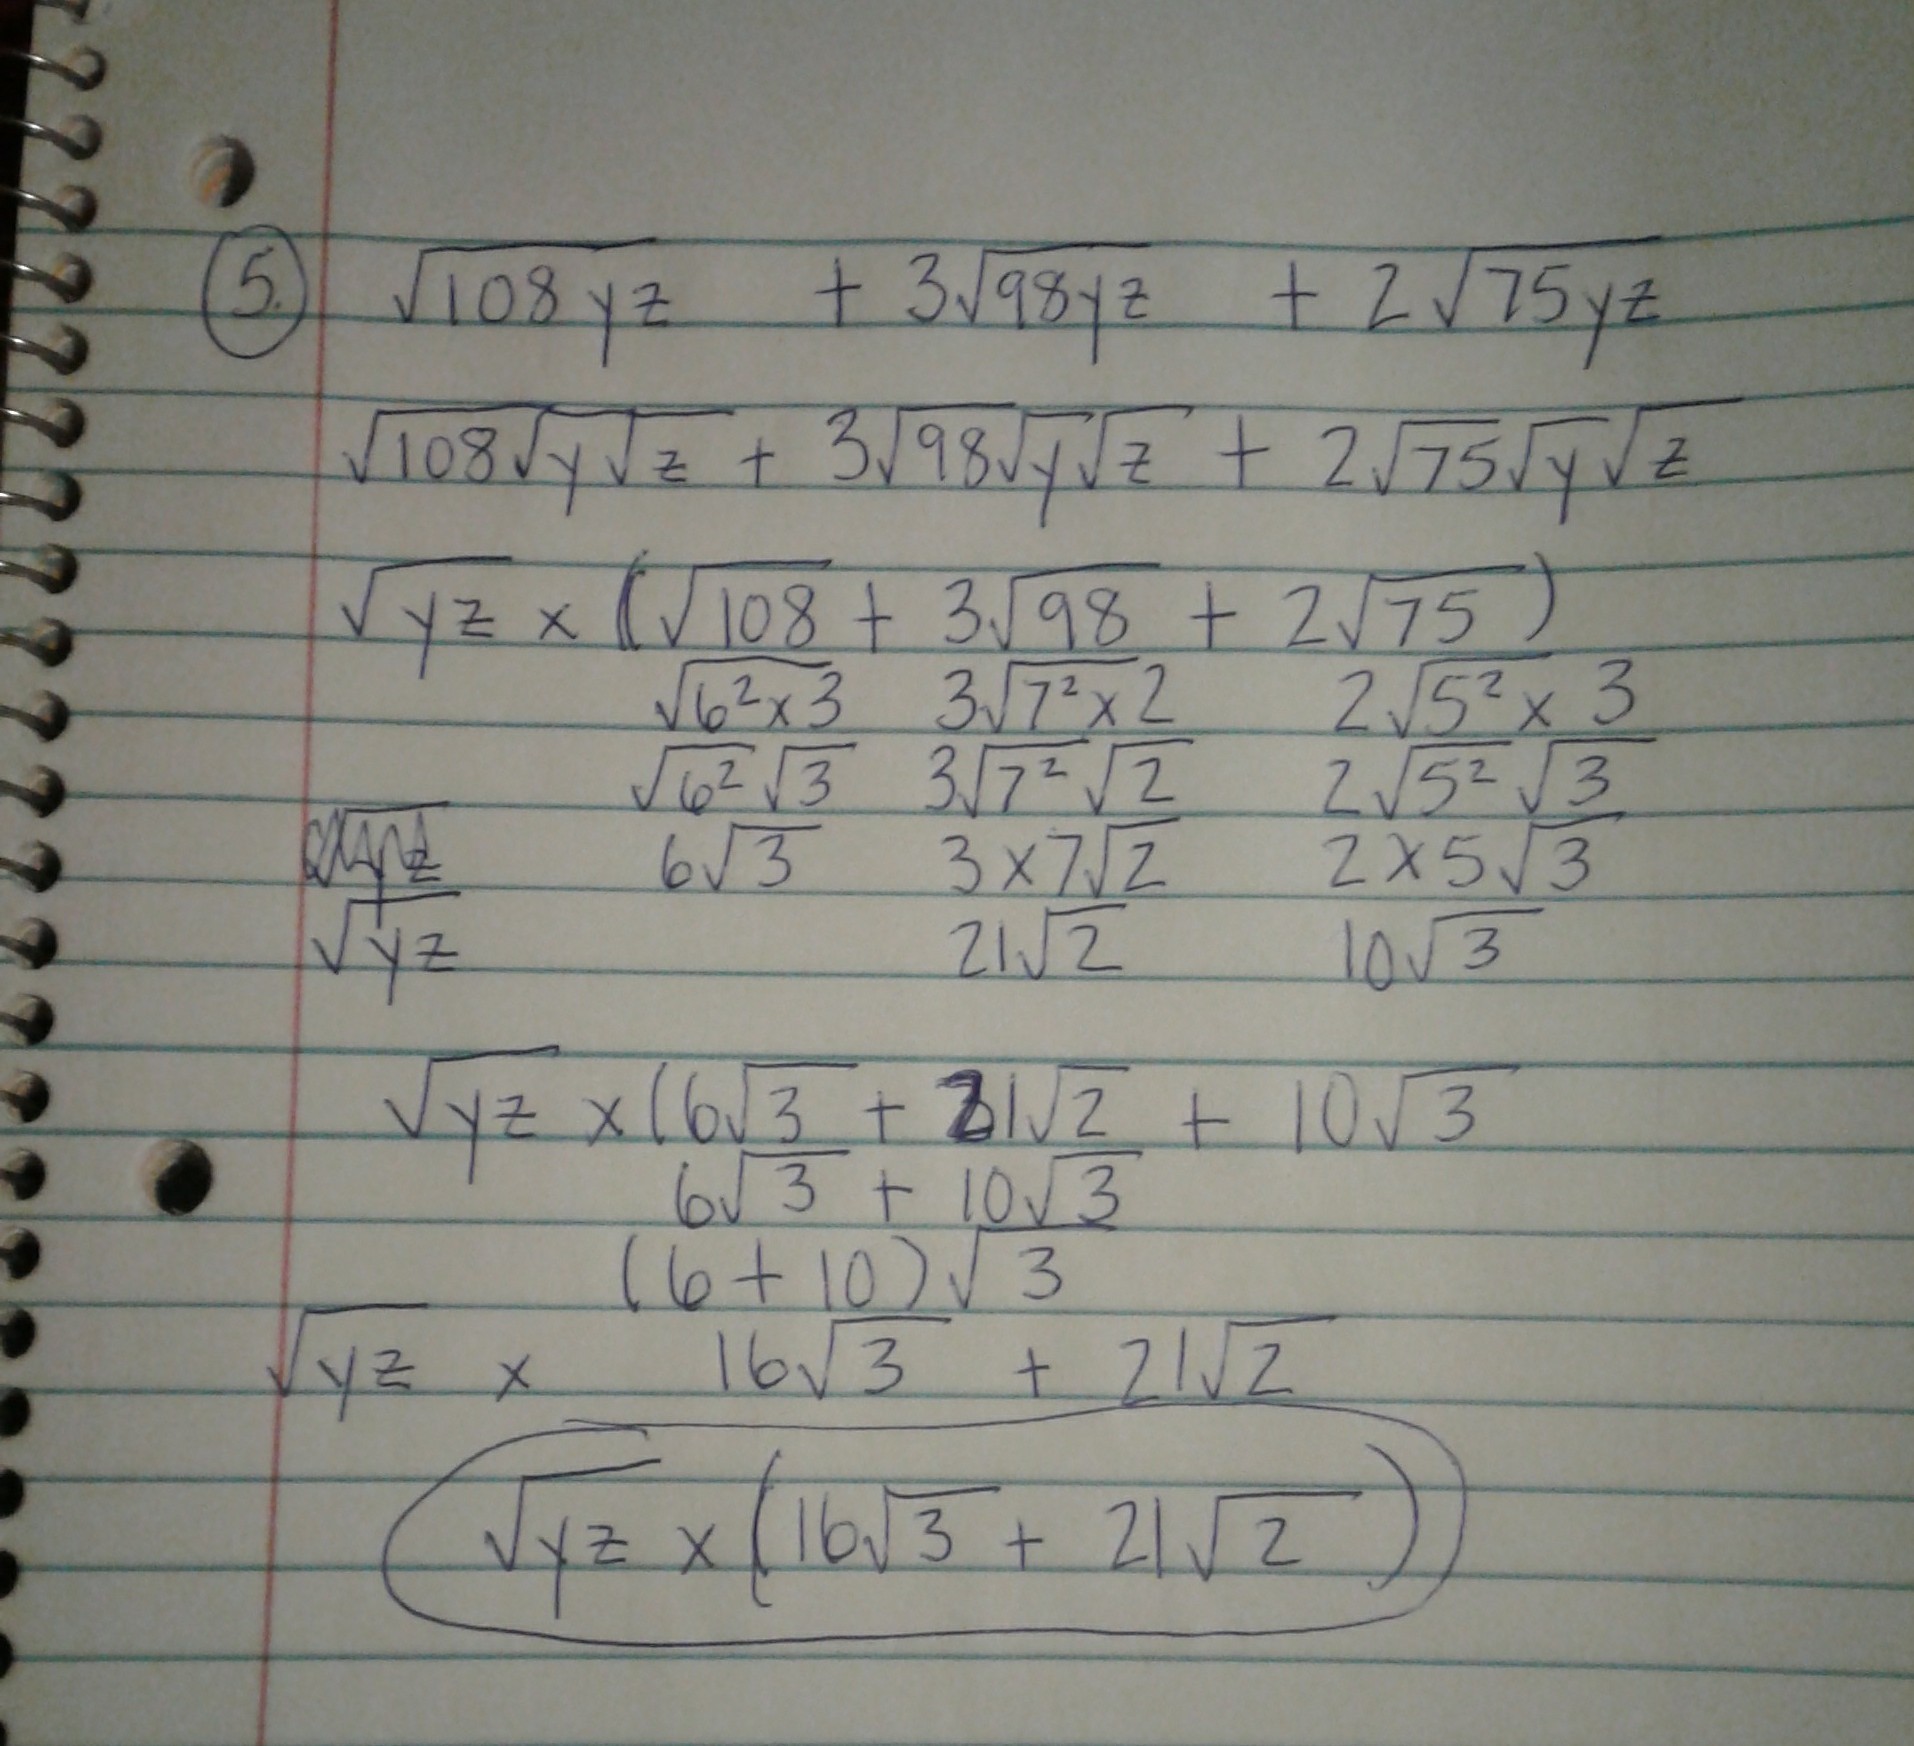 5. √108yz + 3√98yz + 2√75yz
√108√y√z + 3√98√y√z + 2√75√y√z
√yz x (√108 + 3√98 + 2√75)
√6²x3 3√7²x2 2√5²x3
√6²√3 3√7²√2 2√5²√3
6√3 3x7√2 2x5√3
√yz 21√2 10√3
√yz x (6√3 + 21√2 + 10√3
6√3 + 10√3
(6+10)√3
√yz x 16√3 + 21√2
√yz x (16√3 + 21√2)